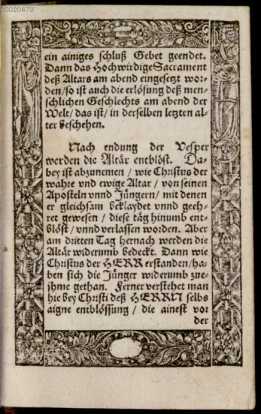 ein ainiges schluß Gebet geendet.
Dann das Hochwürdige Sacrament
deß Altars am abend eingesetzt wor-
den / so ist auch die erlösung deß men-
schlichen Geschlechts am abend der
Welt / das ist / in derselben letzten al-
ter beschehen.
Nach endung der Vesper
werden die Altär entblöst. Da-
bey ist abzunemen / wie Christus der
wahre vnd ewige Altar / von seinen
Aposteln vnnd Jüngern / mit denen
er gleichsam beklaydet vnnd geeh-
ret gewesen / diese täg hinumb ent-
blöst / vnnd verlassen worden. Aber
am dritten Tag hernach werden die
Altär widerumb bedeckt. Dann wie
Christus der HERR erstanden / ha-
ben sich die Jünger widerumb zue-
jhme gethan. Ferner verstehet man
hie bey Christi deß HERRN selbs
aigne entblössung / die ainest vor
der